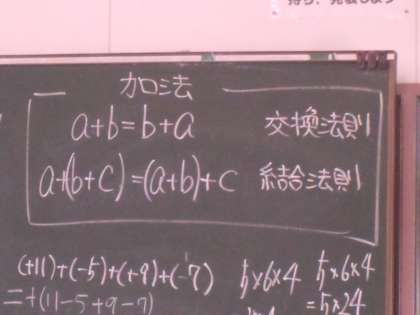 加法
a+b=b+a 交換法則
a+(b+c)=(a+b)+c 結合法則
(+11)+(-5)+(+9)+(-7)
=+(11-5+9-7)
5×6×4
5×6×4
=5×24